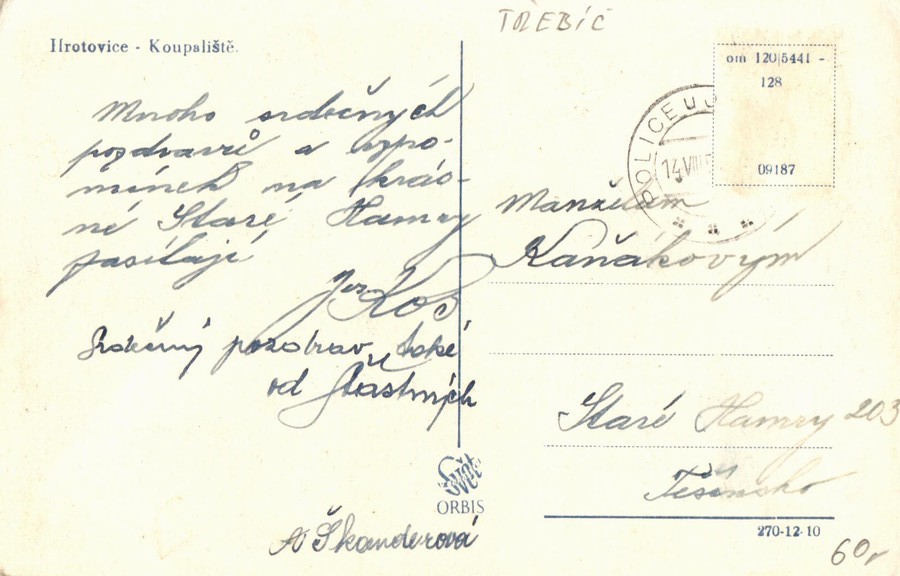 TŘEBÍČ
Hrotovice - Koupaliště.
Mnoho srdečných
pozdravů a vzpo-
mínek na krás-
né Staré Hamry
zasílají
Kos
Srdečný pozdrav také
od Šťastných
A Škanderová
Svět
ORBIS
POLICE U J
14 VIII
om 120/5441 -
128
09187
Manželům
Kaňákovým
Staré Hamry 203
Těšínsko
270-12-10
60,-